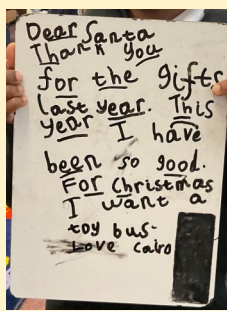 Dear Santa
Thank you
for the gifts
last year. This
year I have
been so good.
For Christmas
I want a
toy bus.
Love Cairo